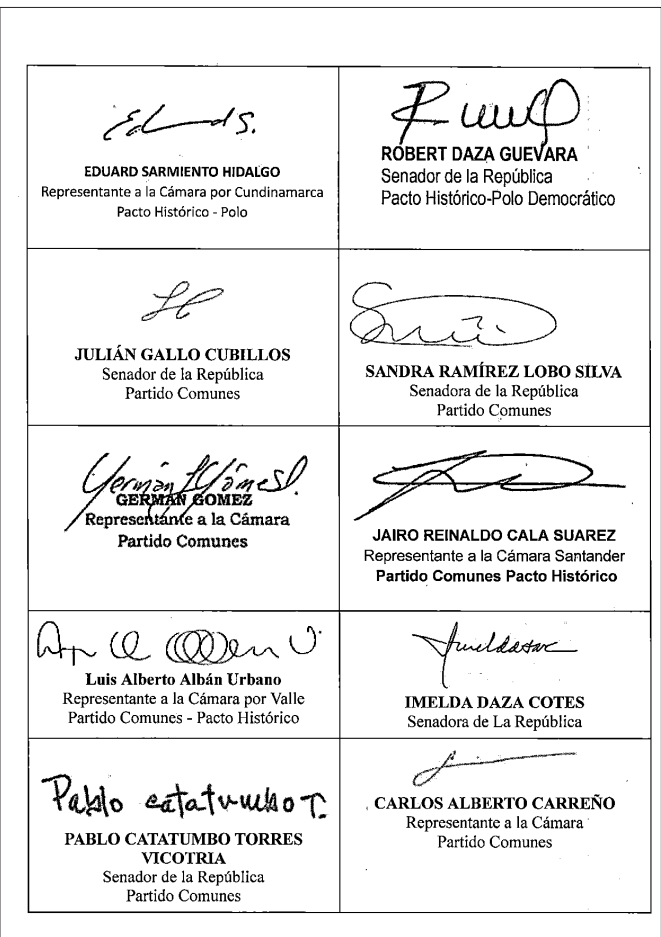 EDUARD SARMIENTO HIDALGO
Representante a la Cámara por Cundinamarca
Pacto Histórico - Polo
RÓBERT DAZA GUEVARA
Senador de la República
Pacto Histórico-Polo Democrático
JULIÁN GALLO CUBILLOS
Senador de la República
Partido Comunes
SANDRA RAMÍREZ LOBO SILVA
Senadora de la República
Partido Comunes
Germán Gómez
GERMÁN GOMEZ
Representante a la Cámara
Partido Comunes
JAIRO REINALDO CALA SUAREZ
Representante a la Cámara Santander
Partido Comunes Pacto Histórico
Luis Alberto Albán Urbano
Representante a la Cámara por Valle
Partido Comunes - Pacto Histórico
IMELDA DAZA COTES
Senadora de La República
Pablo catatumbo T.
PABLO CATATUMBO TORRES
VICOTRIA
Senador de la República
Partido Comunes
CARLOS ALBERTO CARREÑO
Representante a la Cámara
Partido Comunes